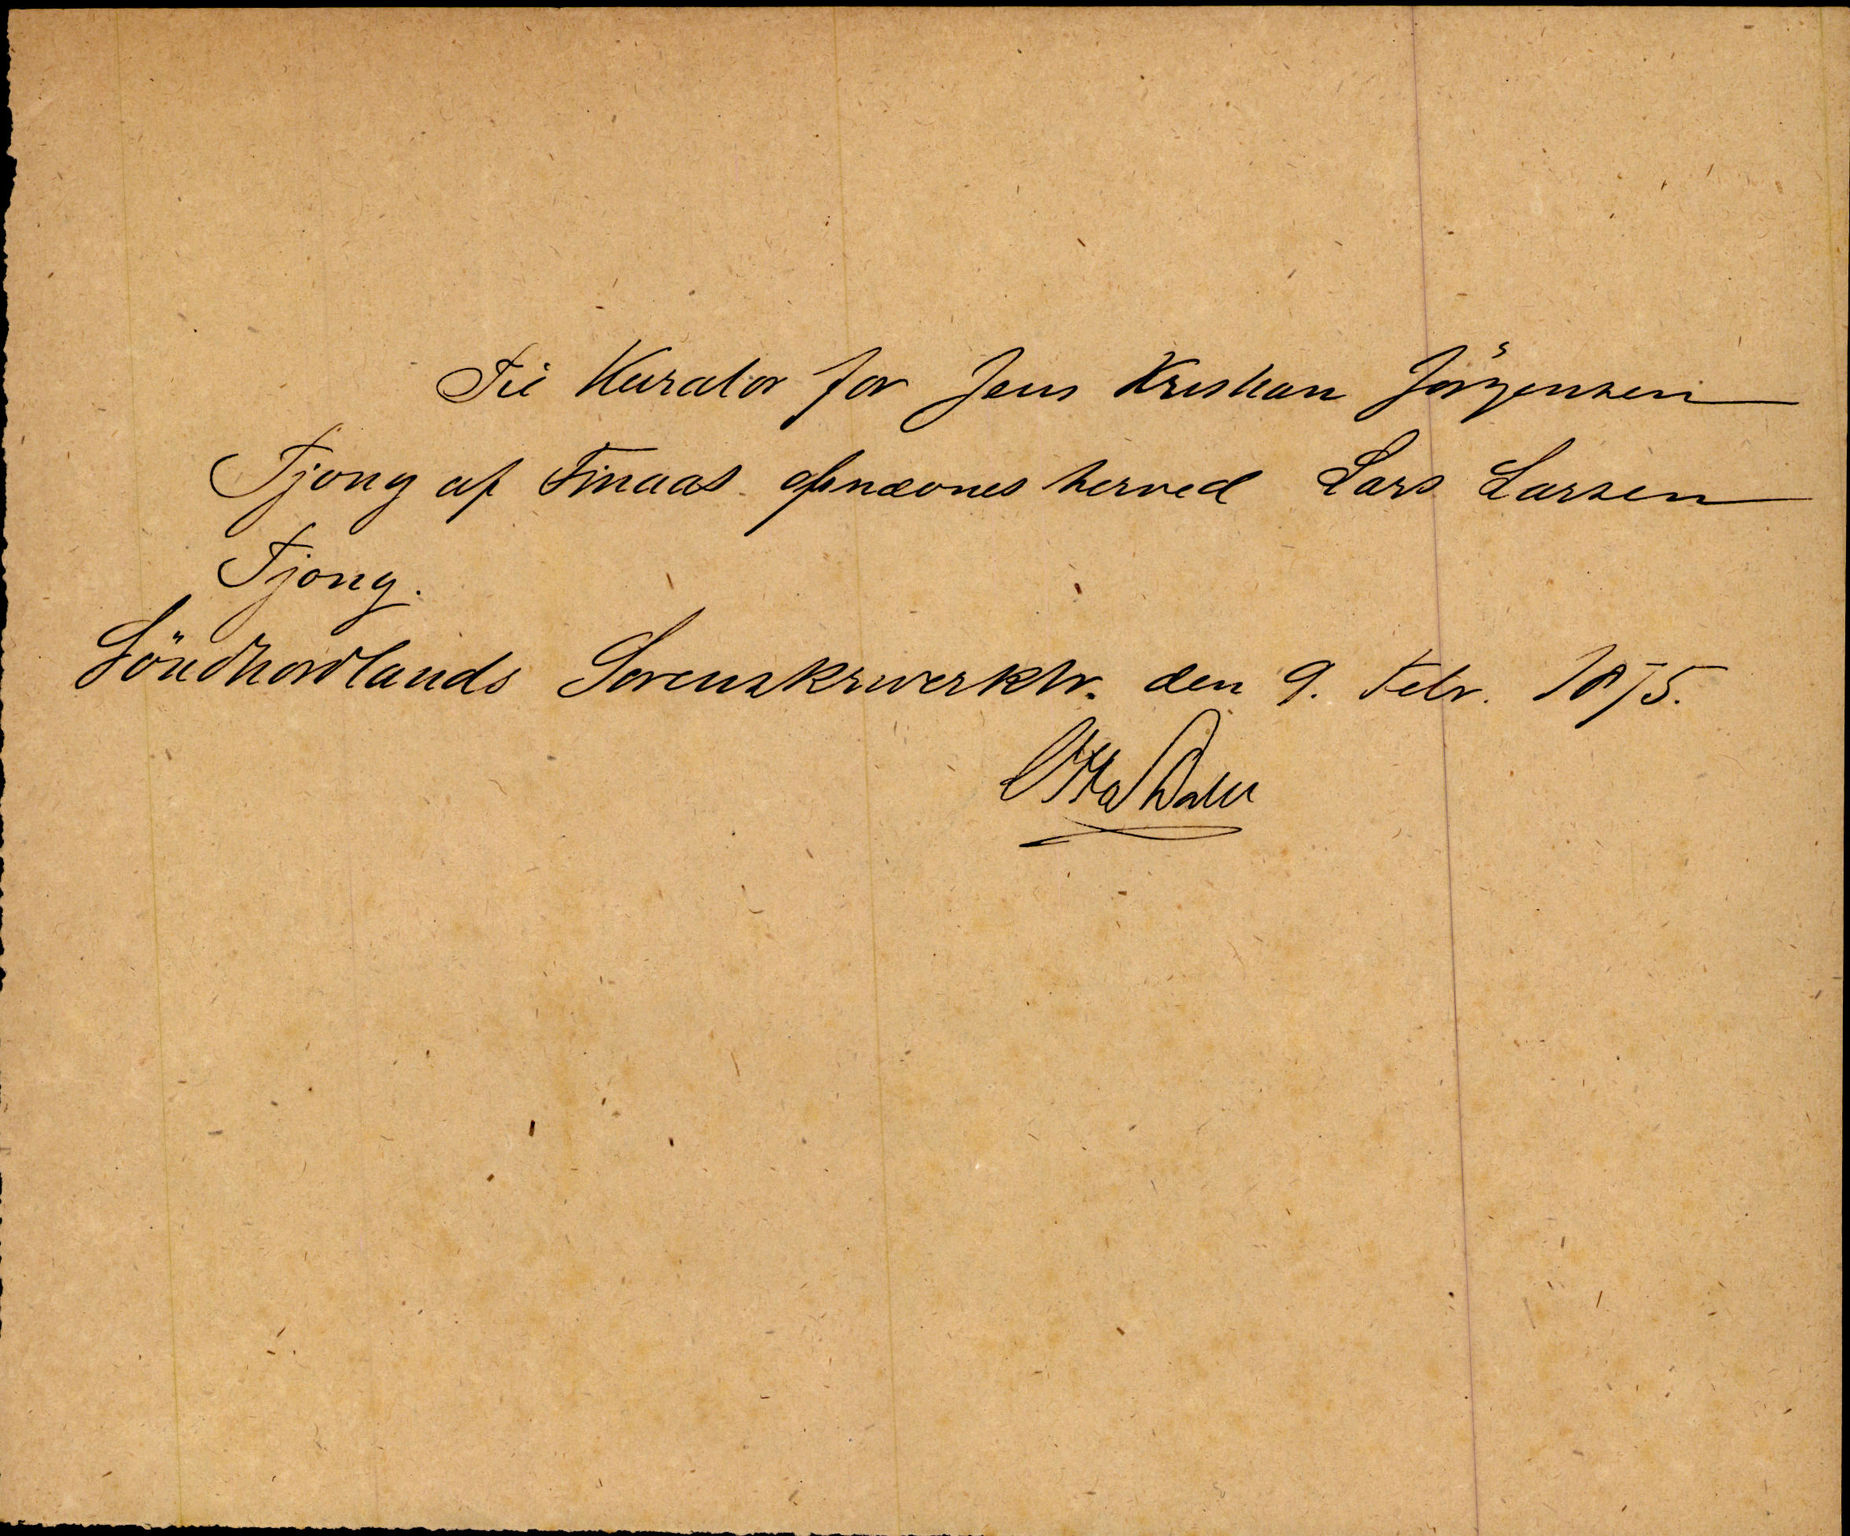 Til Kurator for Jens Kristian Jörgensen
Fjong af Finaas opnævnes herved Lars Larsen
Fjong.
Söndhordlands Sorenskriverktr. den 9. Febr. 1875.
Otto